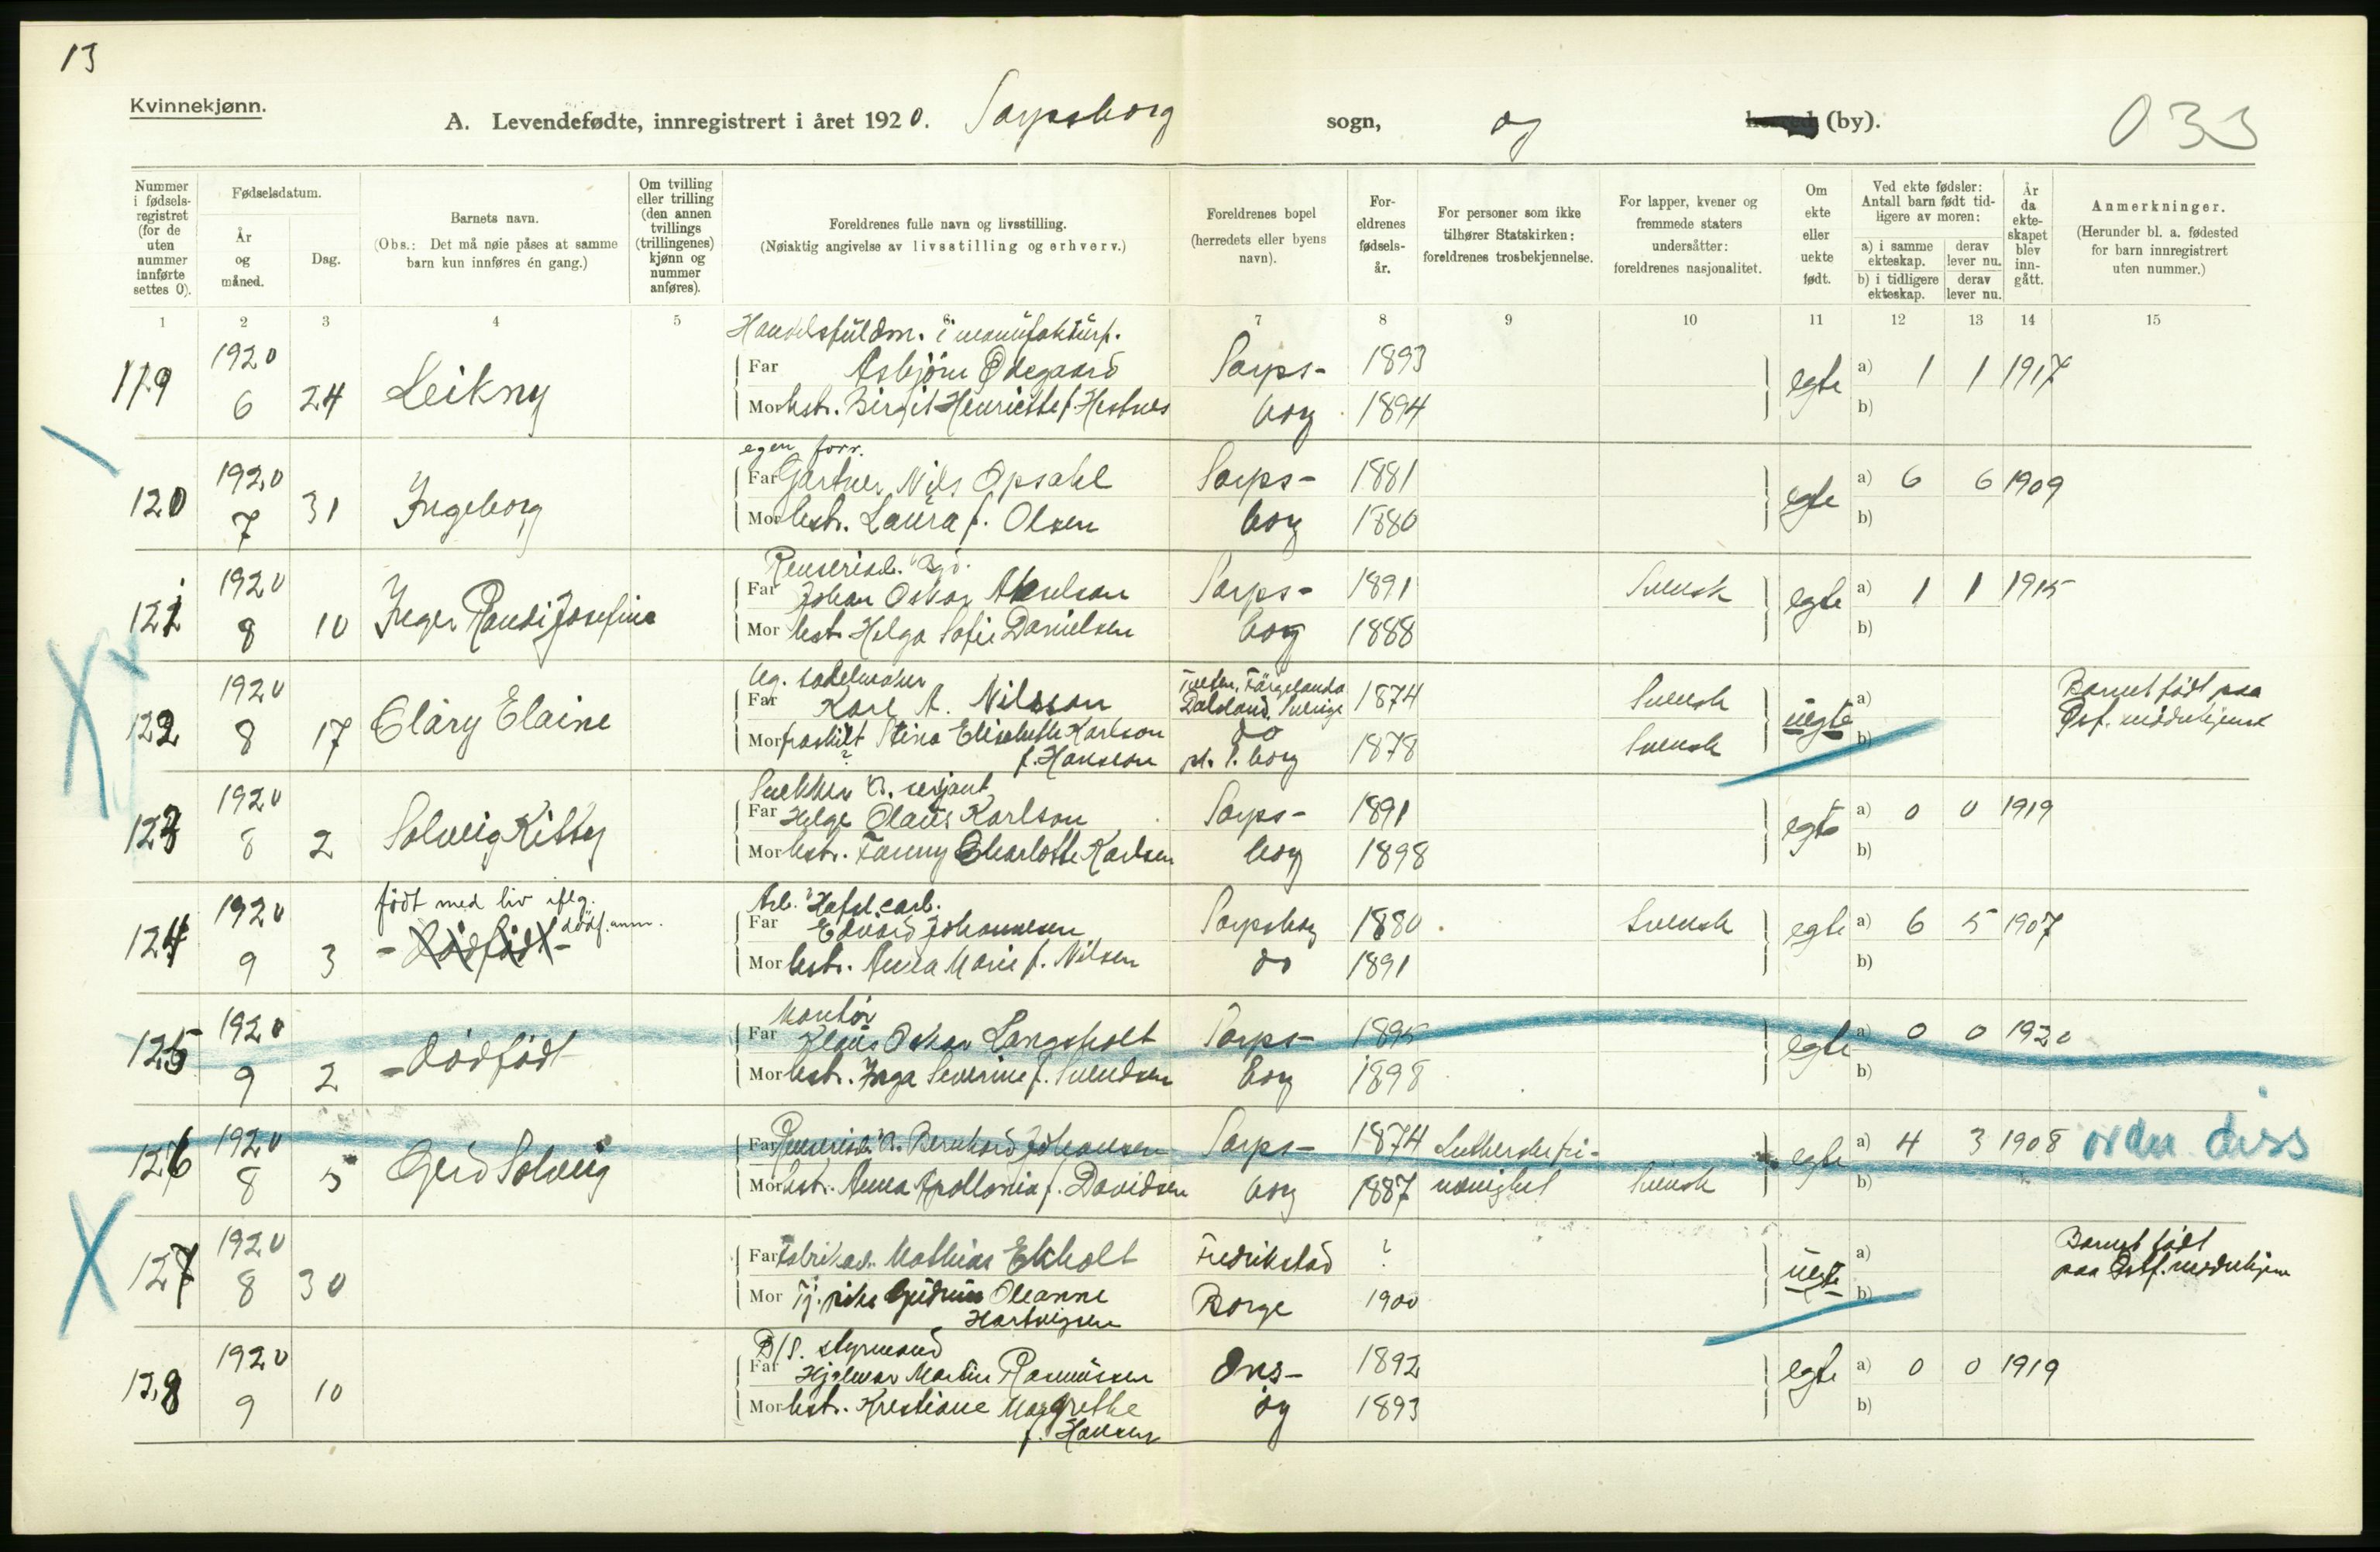 13
Kvinnekjønn.
A. Levendefødte, innregistrert i året 1920. Sarpsborg sogn, og herred (by). 033
Nummer i fødsels-registret (for de uten nummer innførte settes 0).
Fødselsdatum.
År og måned.
Dag.
Barnets navn.
(Obs.: Det må nøie påses at samme barn kun innføres én gang.)
Om tvilling eller trilling (den annen tvillings (trillingenes) kjønn og nummer anføres).
Foreldrenes fulle navn og livsstilling.
(Nøiaktig angivelse av livsstilling og erhverv.)
Foreldrenes bopel (herredets eller byens navn).
For-eldrenes fødsels-år.
For personer som ikke tilhører Statskirken: foreldrenes trosbekjennelse.
For lapper, kvener og fremmede staters undersåtter: foreldrenes nasjonalitet.
Om ekte eller uekte født.
Ved ekte fødsler: Antall barn født tid-ligere av moren:
a) i samme ekteskap. derav lever nu.
b) i tidligere ekteskap. derav lever nu.
År da ekte-skapet blev inn-gått.
Anmerkninger.
(Herunder bl. a. fødested for barn innregistrert uten nummer.)
1 2 3 4 5 6 7 8 9 10 11 12 13 14 15
Handelsfuldm. i manufakturf.
119 1920 6 24 Leikny Far Asbjörn Ödegaard Sarps- 1893 egte a) 1 1 1917
Mor hustr. Birgit Henriette f. Hestnes borg 1894 b)
egen forr.
120 1920 7 31 Ingeborg Far Gartner Nils Opsahl Sarps- 1881 egte a) 6 6 1909
Mor hustr. Laura f. Olsen borg 1880 b)
121 1920 8 10 Inger Randi Josefine Far Johan Oskar Akselson Sarps- 1891 Svensk egte a) 1 1 1915
Mor hustr. Helga Sofie Danielsen borg 1888 b)
Ug. sadelmaker
122 1920 8 17 Clary Elaine Far Karl A. Nilsson Färgelanda Dalsland, Sverige 1874 Svensk uegte a) Barnet födt paa
Mor fraskilt Stina Elisabeth Karlson do 1878 Svensk b) Østf. mödrehjem
f. Hansson pt. S.borg
123 1920 8 2 Solveig Kitty Far Helge Olaus Karlson Sarps- 1891 egte a) 0 0 1919
Mor hustr. Fanny Charlotte Karlsen borg 1898 b)
födt med liv iflg. dödf.anm.
124 1920 9 3 - Dødfødt - Far Edvard Johannesen Sarpsborg 1880 Svensk egte a) 6 5 1907
Mor hustr. Anna Marie f. Nilsen do 1891 b)
Kontor
125 1920 9 2 - Dødfødt Far Klaus Oskar Langsholt Sarps- 1895 egte a) 0 0 1920
Mor hustr. Inga Severine f. Svendsen borg 1898 b)
126 1920 8 5 Gerd Solveig Far Bernhard Johansen Sarps- 1874 Lutherske fri- egte a) 4 3 1908 under diss
Mor hustr. Anna Apollonia f. Davidsen borg 1887 menighet Svensk b)
127 1920 8 30 Far Fabrikarb. Mathias Ekholt Fredrikstad ? uegte a) Barnet födt
Mor Tj. pike Gudrun Oleanne Borge 1900 b) paa Østf. mødrehjem
Hartvigsen
D/S. styrmand
128 1920 9 10 Far Hjalmar Martin Rasmussen Ons- 1892 egte a) 0 0 1919
Mor hustr. Kristiane Margrethe øy 1893 b)
f. Hansen